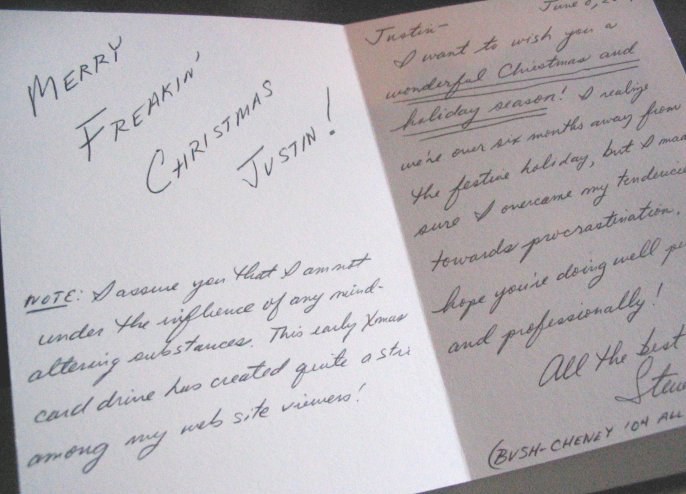 MERRY
FREAKIN'
CHRISTMAS
JUSTIN!
NOTE: I assure you that I am not
under the influence of any mind-
altering substances. This early Xmas
card drive has created quite a stri
among my web site viewers!
June 6,
Justin-
I want to wish you a
wonderful Christmas and
holiday season! I realize
we're over six months away from
the festive holiday, but I mad
sure I overcame my tendencie
towards procrastination.
hope you're doing well pe
and professionally!
All the best
Steve
(BUSH-CHENEY '04 ALL